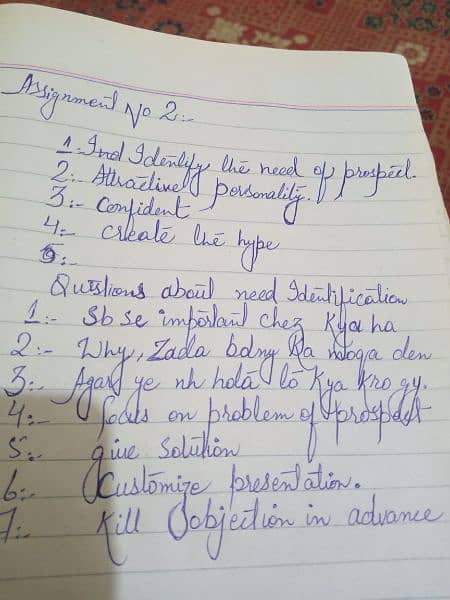 Assignment No 2:-
1:- Ind Identify the need of prospect.
2:- Attractive personality.
3:- Confident
4:- Create the hype
5:-
Questions about need Identification
1:- Sb se important chez Kya ha
2:- Why, Zada bdny Ka moqa den
3:- Agar ye nh hota to Kya Kro gy.
4:- focus on problem of prospect
5:- give solution
6:- Customize presentation.
7:- Kill Oobjection in advance